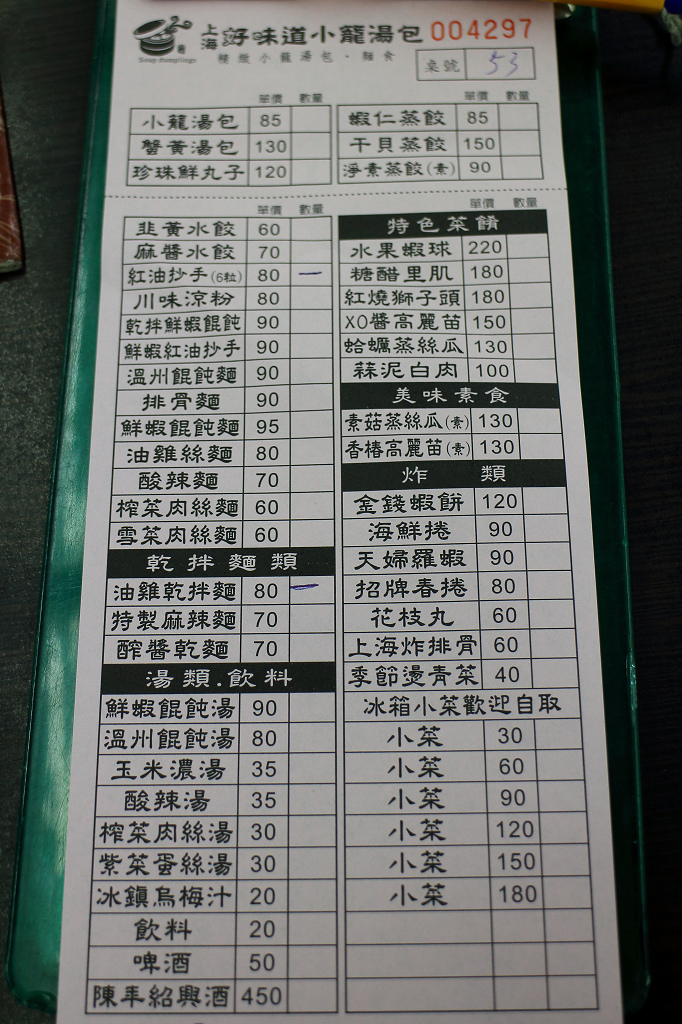 上海 好味道小籠湯包 004297
Soup dumplings
精緻小籠湯包·麵食
桌號 53
單價 數量
小籠湯包 85
蟹黃湯包 130
珍珠鮮丸子 120
單價 數量
蝦仁蒸餃 85
干貝蒸餃 150
淨素蒸餃(素) 90
單價 數量
韭黃水餃 60
麻醬水餃 70
紅油抄手(6粒) 80 一
川味涼粉 80
乾拌鮮蝦餛飩 90
鮮蝦紅油抄手 90
溫州餛飩麵 90
排骨麵 90
鮮蝦餛飩麵 95
油雞絲麵 80
酸辣麵 70
榨菜肉絲麵 60
雪菜肉絲麵 60
乾拌麵類
油雞乾拌麵 80 一
特製麻辣麵 70
酢醬乾麵 70
湯類.飲料
鮮蝦餛飩湯 90
溫州餛飩湯 80
玉米濃湯 35
酸辣湯 35
榨菜肉絲湯 30
紫菜蛋絲湯 30
冰鎮烏梅汁 20
飲料 20
啤酒 50
陳年紹興酒 450
單價 數量
特色菜餚
水果蝦球 220
糖醋里肌 180
紅燒獅子頭 180
XO醬高麗苗 150
蛤蠣蒸絲瓜 130
蒜泥白肉 100
美味素食
素菇蒸絲瓜(素) 130
香椿高麗苗(素) 130
炸 類
金錢蝦餅 120
海鮮捲 90
天婦羅蝦 90
招牌春捲 80
花枝丸 60
上海炸排骨 60
季節燙青菜 40
冰箱小菜歡迎自取
小菜 30
小菜 60
小菜 90
小菜 120
小菜 150
小菜 180